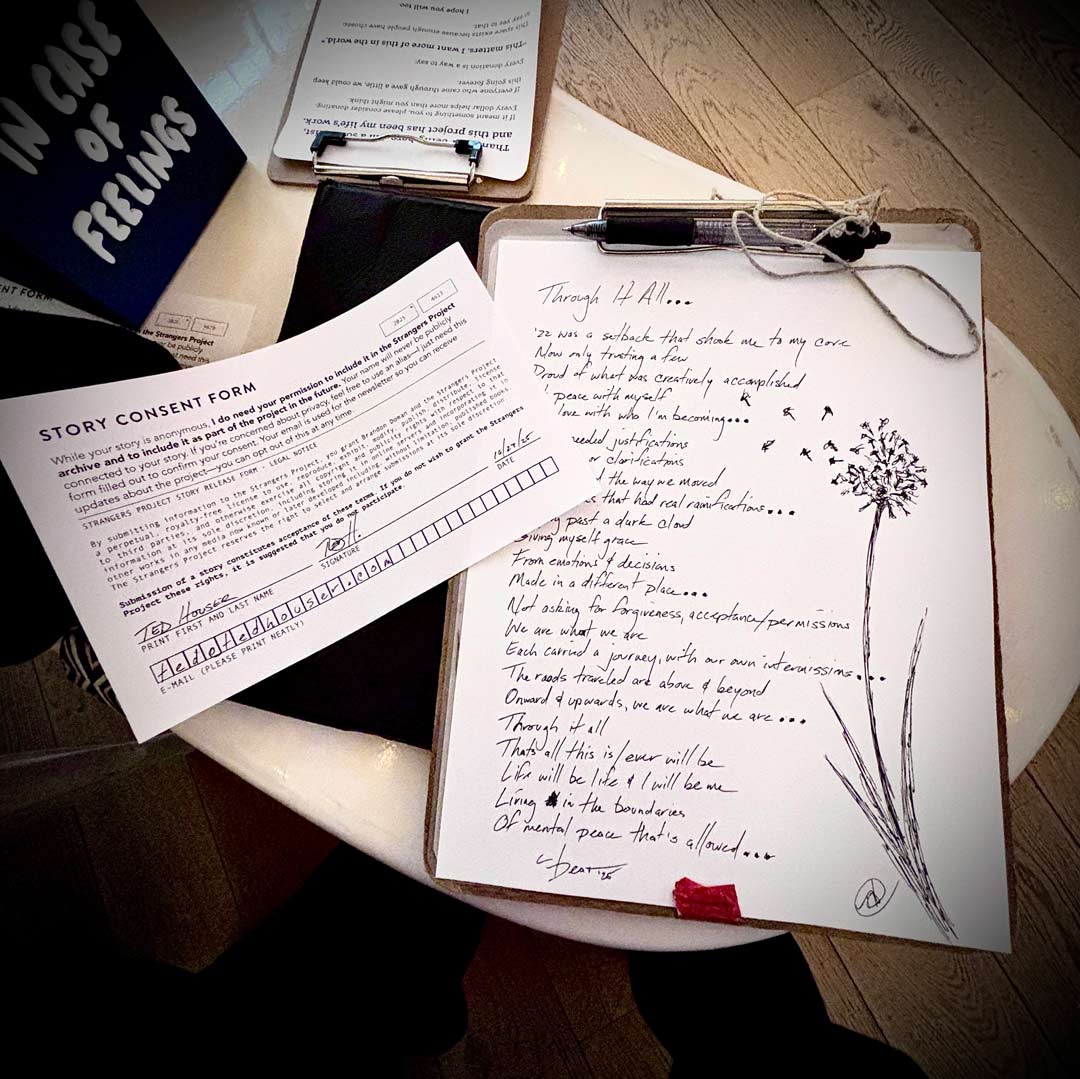 IN CASE
OF
FEELINGS
I hope you will too
say yes to that.
This space exists because enough people have chosen
"This matters. I want more of this in the world."
every donation is a way to say:
this going forever.
If everyone who came through gave a little, we could keep
Every dollar helps more than you might think.
If it meant something to you, please consider donating.
and this project has been my life's work.
being here.
CONSENT FORM
2825
4670
the Strangers Project
never be publicly
just need this
2825
4613
STORY CONSENT FORM
While your story is anonymous, I do need your permission to include it in the Strangers Project
archive and to include it as part of the project in the future. Your name will never be publicly
connected to your story. If you're concerned about privacy, feel free to use an alias—I just need this
form filled out to confirm your consent. Your email is used for the newsletter so you can receive
updates about the project—you can opt out of this at any time.
STRANGERS PROJECT STORY RELEASE FORM - LEGAL NOTICE
By submitting information to the Strangers Project, you grant Brandon Doman and the Strangers Project
a perpetual, royalty-free license to use, reproduce, modify, publish, distribute, license
to third parties, and otherwise exercise all copyright and publicity rights with respect to that
information at its sole discretion, including storing it on online servers and incorporating it in
other works in any media now known or later developed including without limitation published books.
The Strangers Project reserves the right to select and arrange submissions at its sole discretion
Submission of a story constitutes acceptance of these terms. If you do not wish to grant the Strangers
Project these rights, it is suggested that you do not participate.
TED HOUSER
10/27/25
PRINT FIRST AND LAST NAME
SIGNATURE
DATE
ted@tedhouser.com
E-MAIL (PLEASE PRINT NEATLY)
Through It All...
'22 was a setback that shook me to my core
Now only trusting a few
Proud of what was creatively accomplished
peace with myself
love with who I'm becoming...
needed justifications
or clarifications
the way we moved
that had real ramifications...
past a dark cloud
Giving myself grace
From emotions & decisions
Made in a different place...
Not asking for forgiveness, acceptance/permissions
We are what we are
Each carried a journey, with our own intermissions...
The roads traveled are above & beyond
Onward & upwards, we are what we are...
Through it all
Thats all this is/ever will be
Life will be life & I will be me
Living in the boundaries
Of mental peace that's allowed...